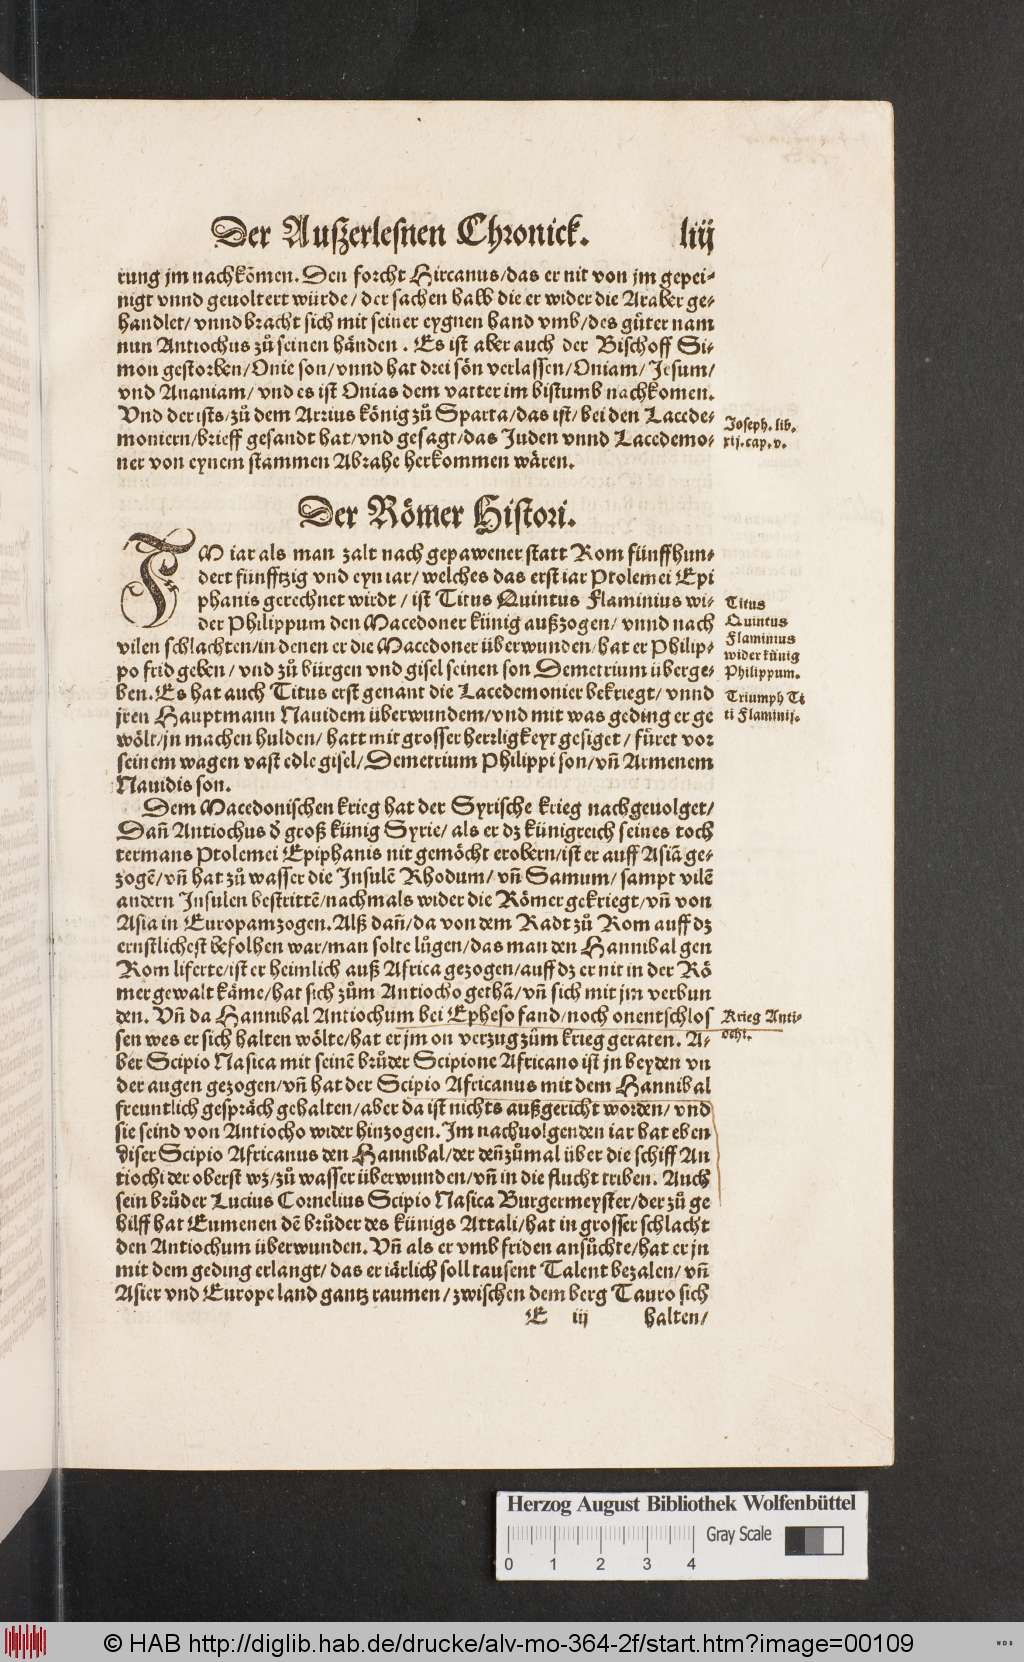 Der Außerlesnen Chronick. liij
rung jm nachkōmen. Den forcht Hircanus/das er nit von jm gepei-
nigt vnnd geuoltert würde/ der sachen halb die er wider die Araber ge-
handlet/ vnnd bracht sich mit seiner eygnen hand vmb/des gůter nam
nun Antiochus zů seinen händen. Es ist aber auch der Bischoff Si-
mon gestorben/Onie son/vnnd hat drei sön verlassen/Oniam/Jesum/
vnd Ananiam/ vnd es ist Onias dem vatter im bistumb nachkomen.
Vnd der ists/zů dem Arrius könig zů Sparta/das ist/bei den Lacede-
moniern/brieff gesandt hat/vnd gesagt/das Juden vnnd Lacedemo-
ner von eynem stammen Abrahe herkommen wären.
Joseph. lib.
xij. cap. v.
Der Römer Histori.
IM iar als man zalt nach gepawener statt Rom fünffhun-
dert fünfftzig vnd eyn iar/ welches das erst iar Ptolemei Epi
phanis gerechnet wirdt/ ist Titus Quintus Flaminius wi-
der Philippum den Macedoner künig außzogen/ vnnd nach
vilen schlachten/in denen er die Macedoner überwunden/hat er Philip-
po frid geben/ vnd zů bürgen vnd gisel seinen son Demetrium überge-
ben. Es hat auch Titus erst genant die Lacedemonier bekriegt/ vnnd
jren Hauptmann Nauidem überwundem/vnd mit was geding er ge
wölt/jn machen hulden/ hatt mit grosser herrligkeyt gesiget/ füret vor
seinem wagen vast edle gisel/Demetrium Philippi son/vñ Armenem
Nauidis son.
Titus
Quintus
Flaminius
wider künig
Philippum.
Triumph Ti
ti Flaminij.
Dem Macedonischen krieg hat der Syrische krieg nachgeuolget/
Dañ Antiochus ď groß künig Syrie/ als er dz künigreich seines toch
termans Ptolemei Epiphanis nit gemöcht erobern/ist er auff Asiā ge-
zogē/vñ hat zů wasser die Insulē Rhodum/ vñ Samum/ sampt vilē
andern Insulen bestrittē/nachmals wider die Römer gekriegt/vñ von
Asia in Europam zogen. Alß dañ/da von dem Radt zů Rom auff dz
ernstlichest befolhen war/man solte lůgen/das man den Hannibal gen
Rom liferte/ist er heimlich auß Africa gezogen/auff dz er nit in der Rö
mer gewalt käme/hat sich zům Antiocho gethā/vñ sich mit jm verbun
den. Vñ da Hannibal Antiochum bei Epheso fand/noch onentschlos
sen wes er sich halten wölte/hat er jm on verzug zům krieg geraten. A-
ber Scipio Nasica mit seinē brůder Scipione Africano ist jn beyden vn
der augen gezogen/vñ hat der Scipio Africanus mit dem Hannibal
freuntlich gespräch gehalten/aber da ist nichts außgericht worden/ vnd
sie seind von Antiocho wider hinzogen. Im nachuolgenden iar hat eben
diser Scipio Africanus den Hannibal/der deñzůmal über die schiff An
tiochi der oberst wz/zů wasser überwunden/vñ in die flucht triben. Auch
sein brůder Lucius Cornelius Scipio Nasica Burgermeyster/der zů ge
hilff hat Eumenen dē brůder des künigs Attali/hat in grosser schlacht
den Antiochum überwunden. Vñ als er vmb friden ansůchte/hat er jn
mit dem geding erlangt/ das er iärlich soll tausent Talent bezalen/ vñ
Asier vnd Europe land gantz raumen/ zwischen dem berg Tauro sich
Krieg Anti-
ochi.
E iij halten/
Herzog August Bibliothek Wolfenbüttel
Gray Scale
0 1 2 3 4
© HAB http://diglib.hab.de/drucke/alv-mo-364-2f/start.htm?image=00109